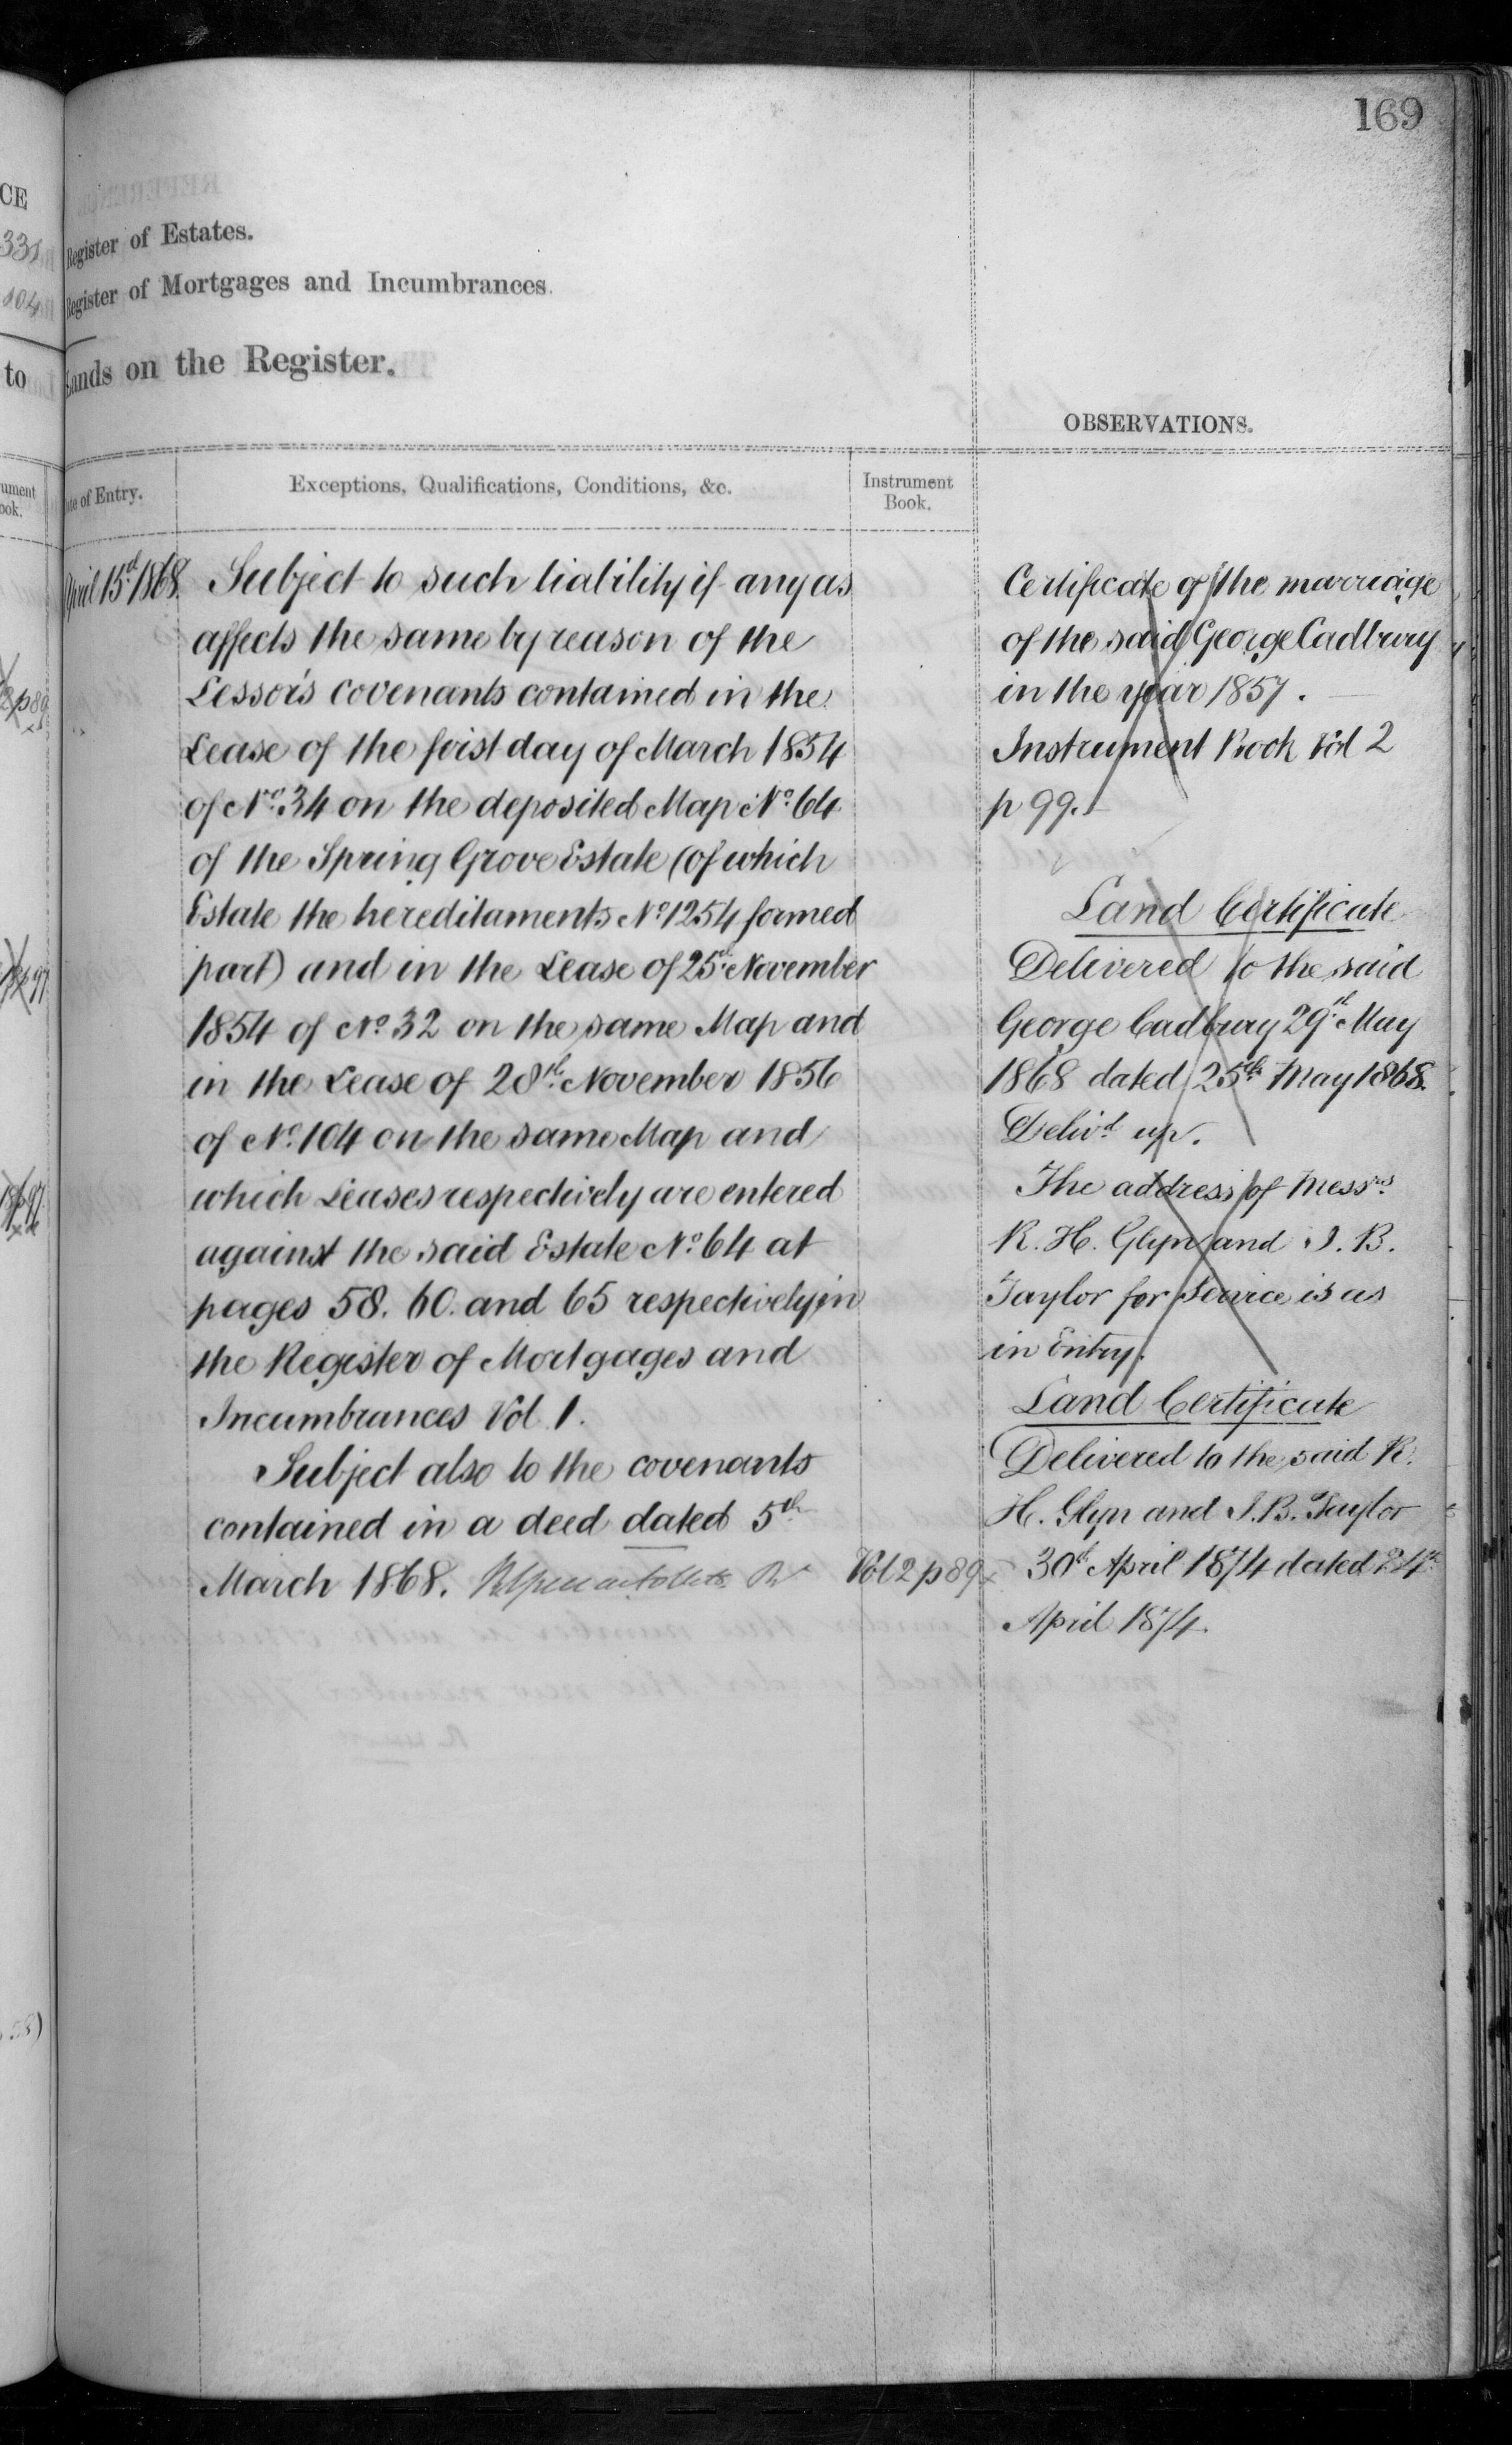 169
CE
Register of Estates.
Register of Mortgages and Incumbrances.
to
Lands on the Register.
OBSERVATIONS.
Date of Entry.
Exceptions, Qualifications, Conditions, &c.
Instrument
Book.
April 15d 1868
Subject to such liability if any as
affects the same by reason of the
Lessor's covenants contained in the
Lease of the first day of March 1854
of No. 34 on the deposited Map No. 64
of the Spring Grove Estate (of which
Estate the hereditaments No 1254 formed
part) and in the Lease of 25th November
1854 of No. 32 on the same Map and
in the Lease of 28th November 1856
of No. 104 on the same Map and
which Leases respectively are entered
against the said Estate No. 64 at
pages 58. 60. and 65 respectively in
the Register of Mortgages and
Incumbrances Vol 1.
Subject also to the covenants
contained in a deed dated 5th
March 1868.
Vol 2 p 89
Certificate of the marriage
of the said George Cadbury
in the year 1857.
Instrument Book Vol 2
p 99.
Land Certificate
Delivered to the said
George Cadbury 29th May
1868 dated 25th May 1868.
Delivd up.
The address of Messrs
R. H. Glyn and I. B.
Taylor for Service is as
in Entry.
Land Certificate
Delivered to the said R.
H. Glyn and I. B. Taylor
30th April 1874 dated 24th
April 1874.